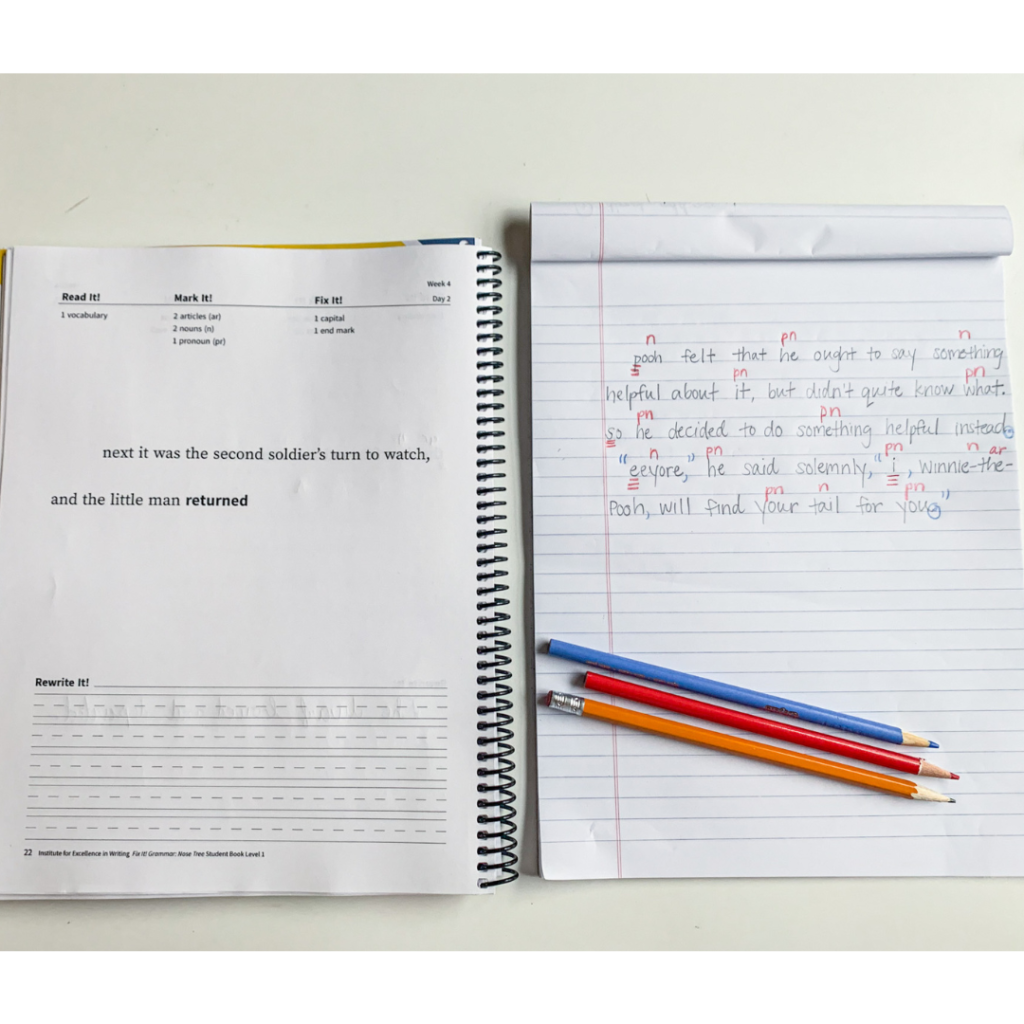 Week 4
Read It! Mark It! Fix It! Day 2
1 vocabulary 2 articles (ar) 1 capital
2 nouns (n) 1 end mark
1 pronoun (pr)
next it was the second soldier's turn to watch,
and the little man returned
Rewrite It!
22 Institute for Excellence in Writing Fix It! Grammar: Nose Tree Student Book Level 1
n pn n
pooh felt that he ought to say something
pn pn
helpful about it, but didn't quite know what.
pn pn
so he decided to do something helpful instead.
n pn pn n ar
"eeyore," he said solemnly, "i, Winnie-the-
pn n pn
Pooh, will find your tail for you."